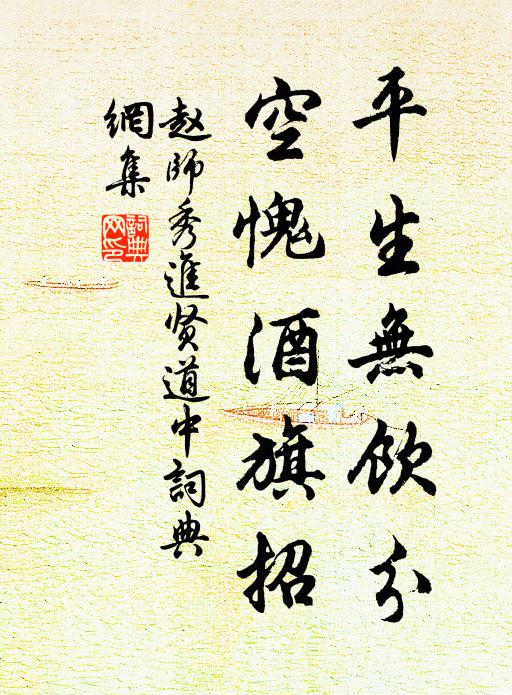 平生無飲分
空愧酒旗招
赵師秀進贤道中詞典
網集
詞典
网印